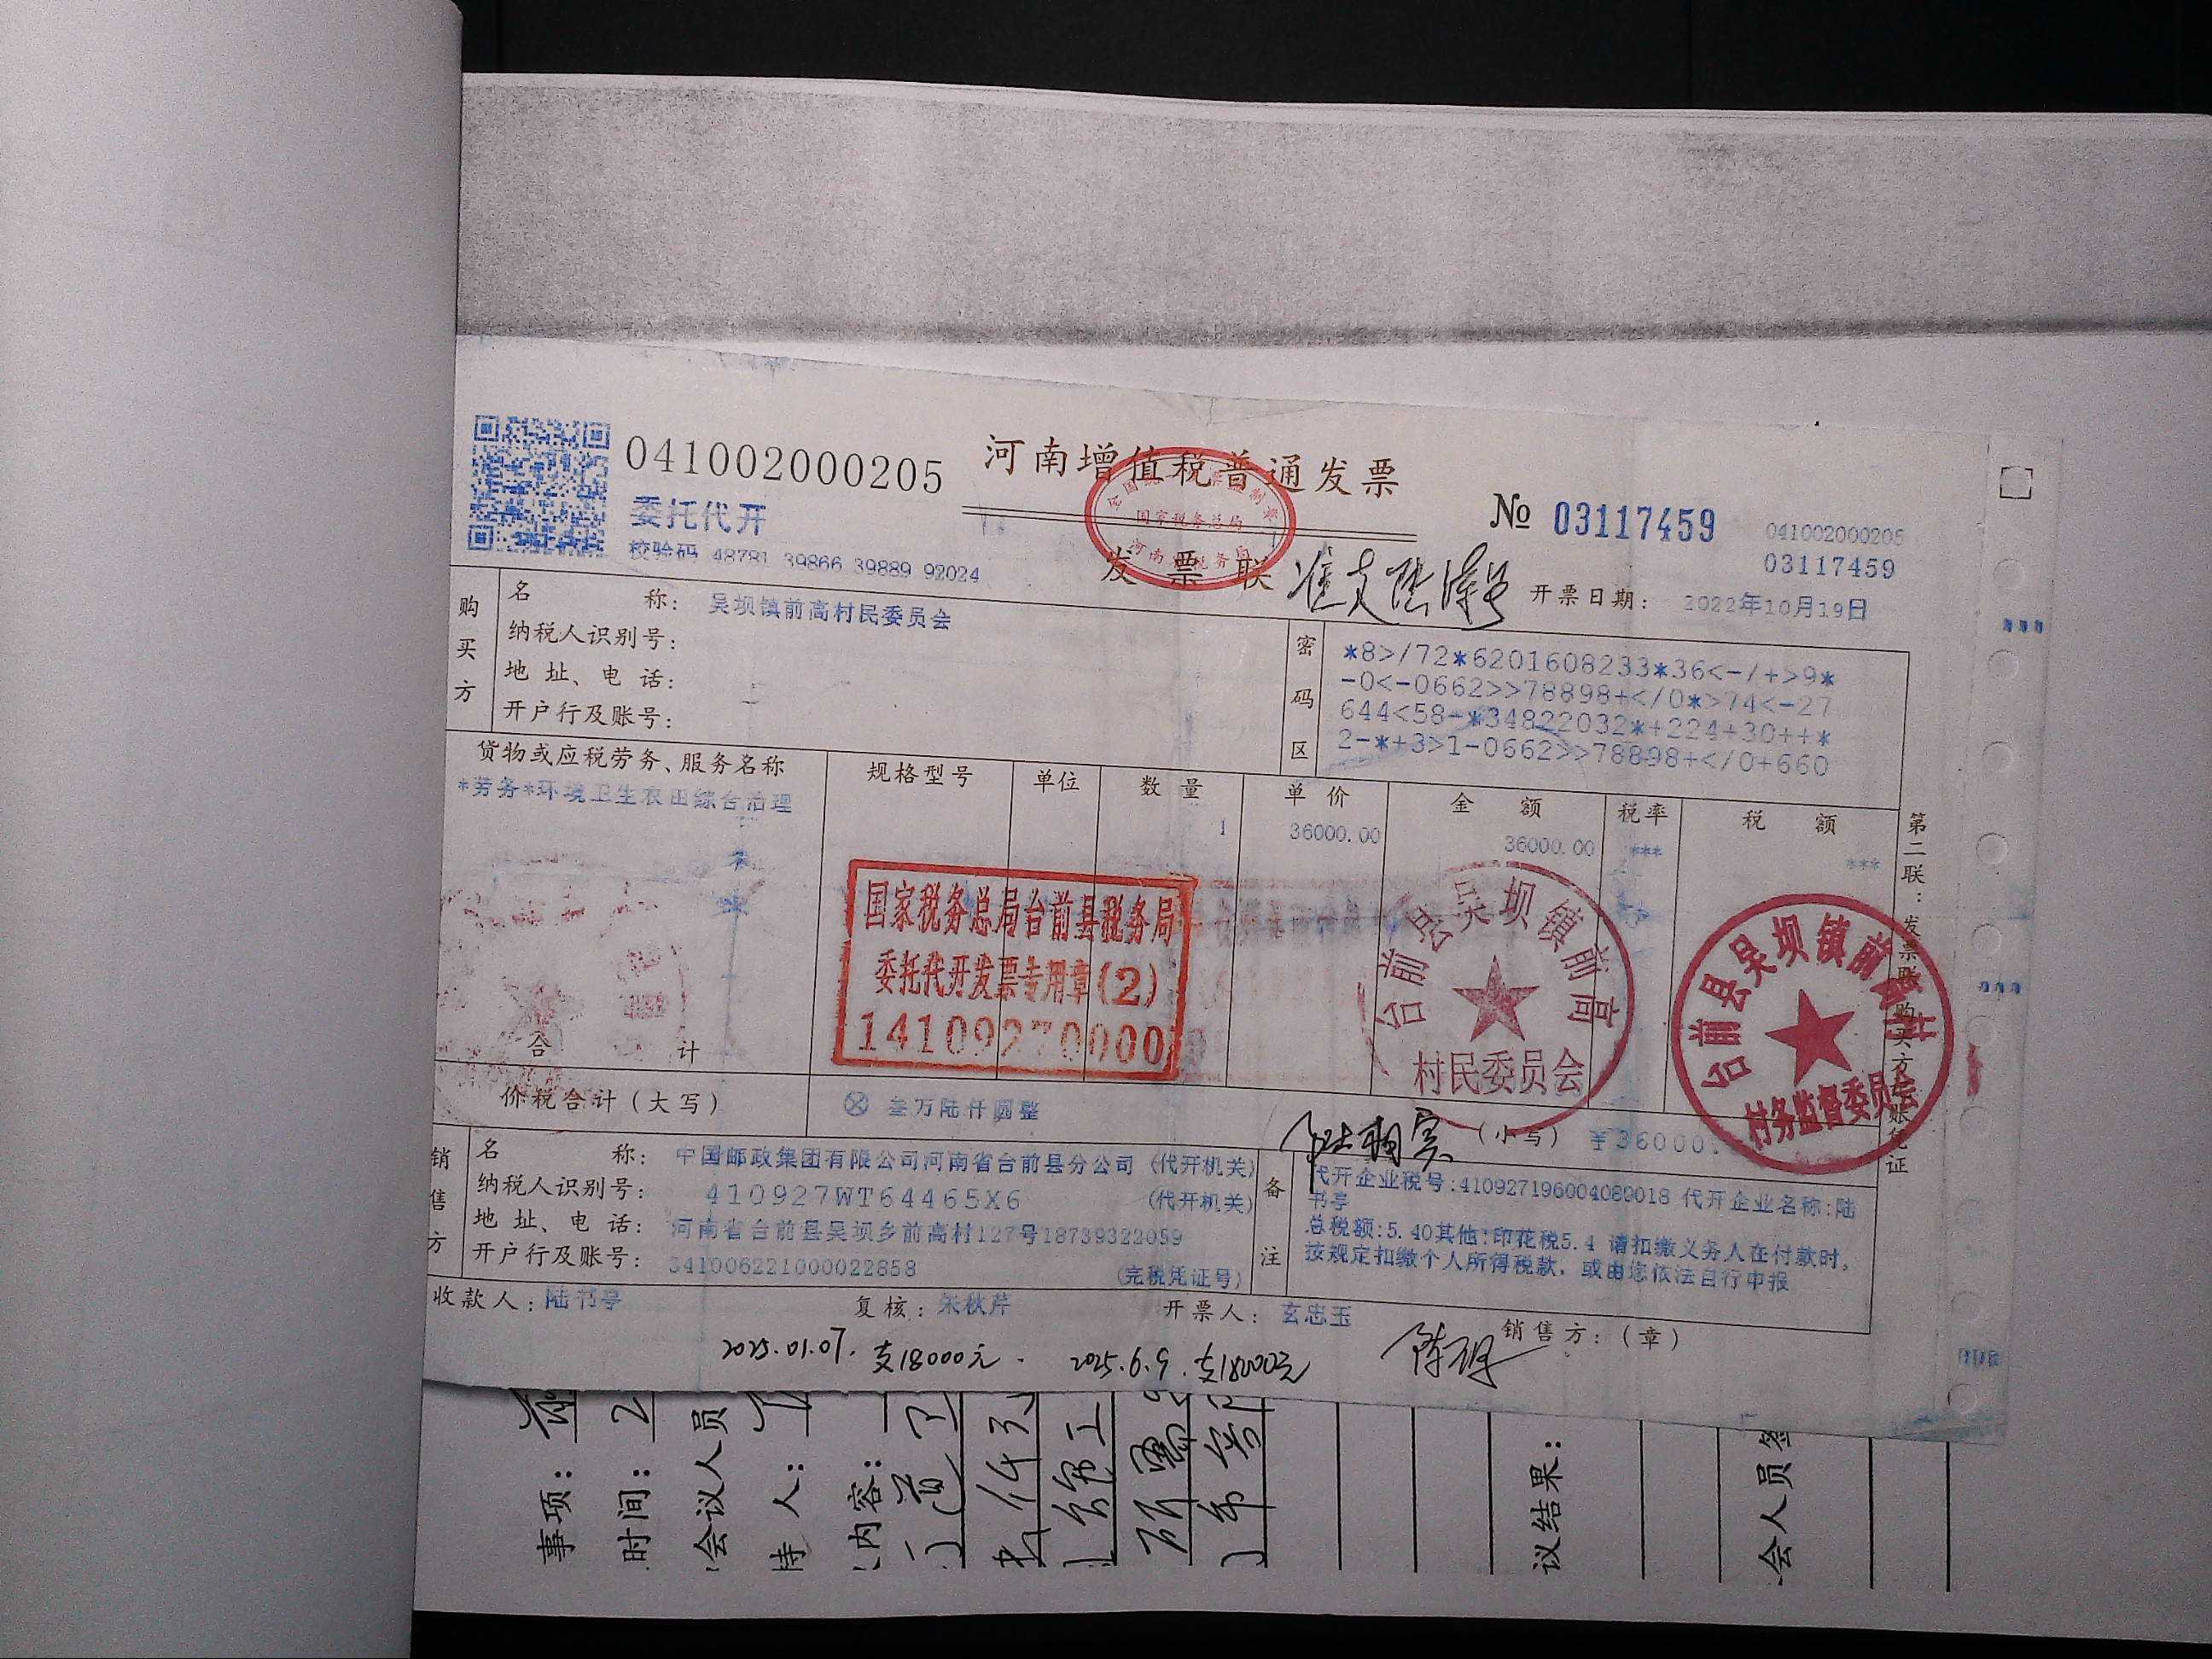 041002000205
河南增值税普通发票
№ 03117459
041002000205
03117459
委托代开
校验码 48781 39866 39889 92024
国家税务总局
发票联
准支
开票日期: 2022年10月19日
购买方
名称: 吴坝镇前高村民委员会
纳税人识别号:
地址、电话:
开户行及账号:
密码区
*8>/72*6201608233*36<-/+>9*
-0<-0662>>78898+</0*>74<-27
644<58-*34822032*+224+30++*
2-*+3>1-0662>>78898+</0+660
货物或应税劳务、服务名称 规格型号 单位 数量 单价 金额 税率 税额
*劳务*环境卫生农田综合治理 1 36000.00 36000.00 *** ***
国家税务总局台前县税务局
委托代开发票专用章(2)
14109270000
台前县吴坝镇前高
村民委员会
台前县吴坝镇前高村
村务监督委员会
第二联:发票联 购买方记账凭证
合计
价税合计(大写) ⊗ 叁万陆仟圆整 (小写) ¥36000.
销售方
名称: 中国邮政集团有限公司河南省台前县分公司 (代开机关)
纳税人识别号: 410927WT64465X6 (代开机关)
地址、电话: 河南省台前县吴坝乡前高村127号18739322059
开户行及账号: 341006221000022858 (完税凭证号)
备注
代开企业税号:410927196004089018 代开企业名称:陆
书亭
总税额:5.40其他:印花税5.4 请扣缴义务人在付款时,
按规定扣缴个人所得税款, 或由您依法自行申报
收款人: 陆书亭 复核: 朱秋芹 开票人: 玄忠玉 销售方:(章)
2025.01.07. 支18000元. 2025.6.9. 支18000元
事项:
时间:
会议人员
持人:
内容:
议结果:
会人员签